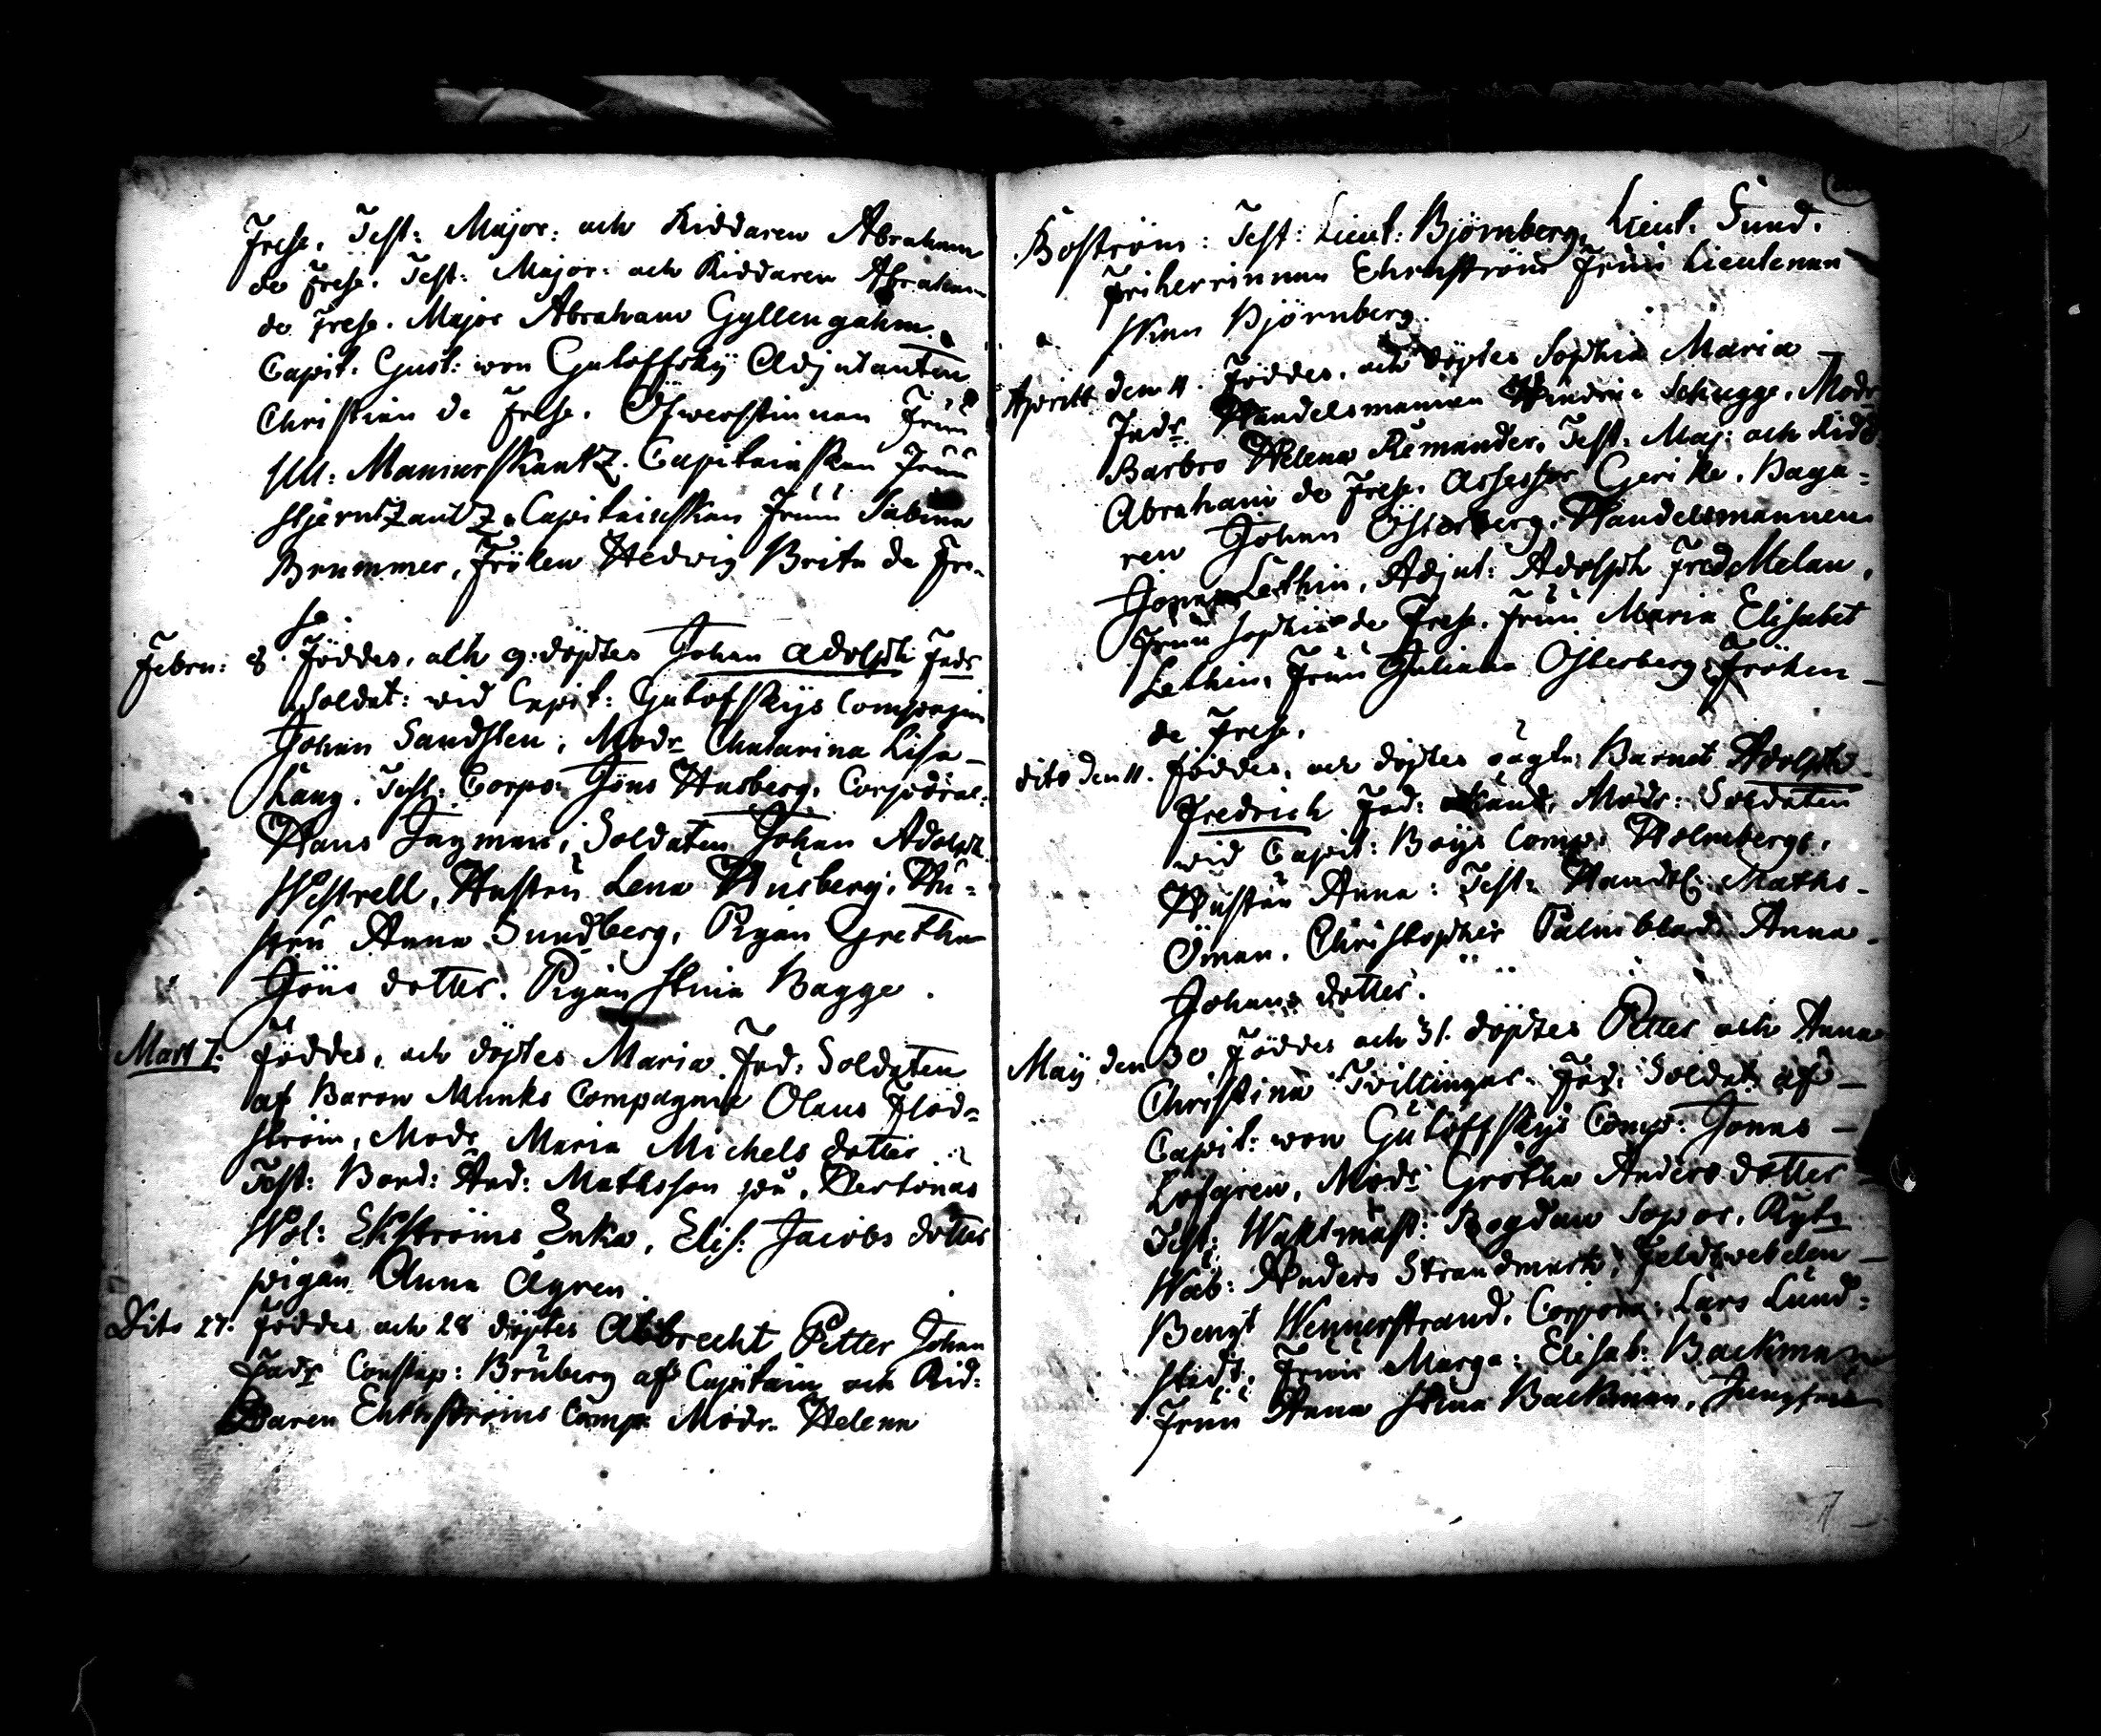 Frese. Test: Major: och Riddaren Abraham
de Frese. Test: Major: och Riddaren Abraham
de Frese. Major Abraham Gyllengahm.
Capit. Gust: von Gutoffsky Adjutanten
Christian de Frese. Öfwerstinnan Fruu
Ull: Mannerskantz. Capitainskan Fruu
Stjerntzantz. Capitainskan Fruu Sabina
Brummer, Fröken Hedwig Brita de Fre-
se.
Febru: 8. Föddes, och 9. döptes Johan Adolph Fadr
Soldat: wid Capit: Gutofskys Compagni
Johan Sandsten, Modr Chatarina Lisa
Lang. Test: Corpo: Jöns Husberg, Corporal:
Hans Tagman, Soldaten Johan Adolph
Westrell, Hustru Lena Husberg, Hu-
stru Anna Sundberg, Pigan Gretha
Jöns dotter. Pigan Stina Bagge.
Mart 1: föddes, och döptes Maria. Fad: Soldaten
af Baron Munks Compagnie Olaus Flod-
ström, Modr Maria Michels dotter
Test: Bond: And: Mathsson på Hertonas
Wol: Ekströms Enka, Elis: Jacobs dotter
pigan Anna Ågren.
Dito 27: föddes och 28 döptes Albrecht Petter Johan
Fadr Constap: Bruberg af Capitain och Rid:
daren Ehrnströms Comp: Modr. Helena
Boström: Test: Lieut: Björnberg, Lieut. Sund.
Friherrinnan Ehrnström Fruu Lieutenan
skan Björnberg.
Aprill den 11. Föddes, och döptes Sophia Maria
Fadr Handelsmannen Hindric Schugge, Modr
Barbro Helena Remander, Test: Maj: och Ridd
Abraham de Frese. Assessor Gerike. Baga-
ren Johan Österberg, Handelsmannen
Jonas Lethin, Adjut: Adolph Fred Melan,
Fruu Sophia de Frese, Fruu Maria Elisabet
Lethin, Fruu Juliana Österberg, Fröken
de Frese.
dito den 11. föddes, och döptes oägta Barnet Adolph
Fredrich Fad: okänd, Modr: Soldaten
wid Capit: Boijs Comp: Holmbergs,
Hustru Anna: Test: Handl: Maths
Öman. Christopher Palmblad. Anna
Johans dotter.
Maij den 30 Föddes och 31. döptes Petter och Anna
Christina Tvillingar. Fad: Soldat af
Capit: won Gutoffskys Comp: Jonas
Löfgren, Modr Gretha Anders dotter
Test: Waktmäst: Bogdan Sopor, Ryts
Wab: Anders Strandmark, Feldtwebelen
Bengt Wennerstrand, Corpora: Lars Lund-
stedt. Fruu Marga: Elisab: Backman
Fruu Anna Stina Backman, Jungfru
7